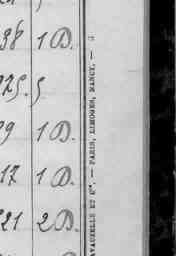 38 1 D.
225.5
29 1 D.
17 1 D.
21 2 D.
AVAUZELLE ET Cie. — PARIS, LIMOGES, NANCY. —